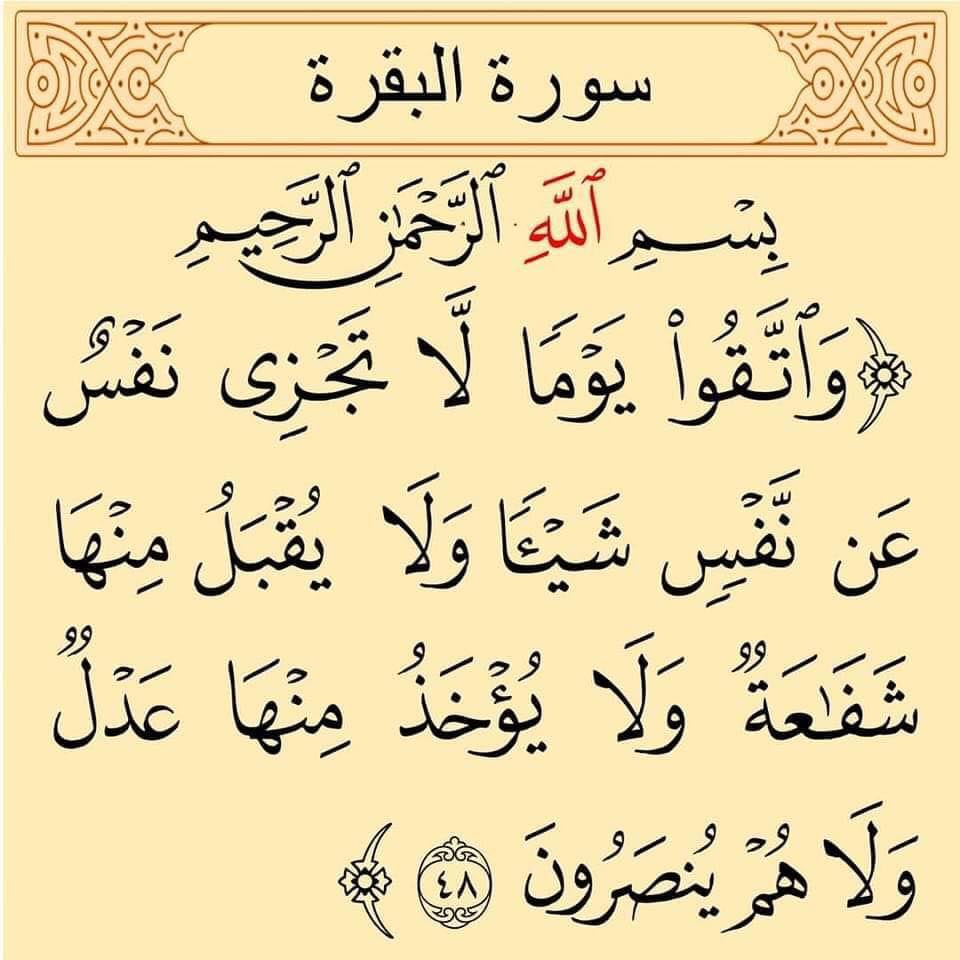 سورة البقرة
بِسْمِ ٱللَّهِ ٱلرَّحْمَٰنِ ٱلرَّحِيمِ
﴿وَٱتَّقُوا۟ يَوْمًا لَّا تَجْزِى نَفْسٌ
عَن نَّفْسٍ شَيْـًٔا وَلَا يُقْبَلُ مِنْهَا
شَفَٰعَةٌ وَلَا يُؤْخَذُ مِنْهَا عَدْلٌ
وَلَا هُمْ يُنصَرُونَ ٤٨﴾